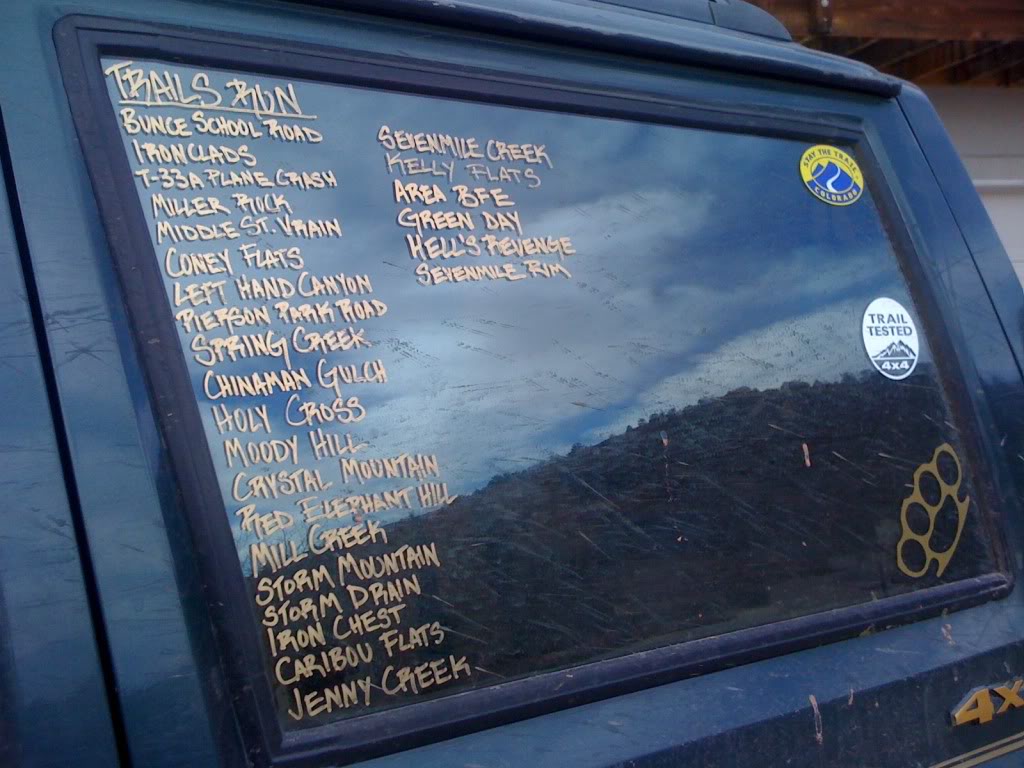 TRAILS RUN
BUNCE SCHOOL ROAD
IRONCLADS
T-33A PLANE CRASH
MILLER ROCK
MIDDLE ST. VRAIN
CONEY FLATS
LEFT HAND CANYON
PIERSON PARK ROAD
SPRING CREEK
CHINAMAN GULCH
HOLY CROSS
MOODY HILL
CRYSTAL MOUNTAIN
RED ELEPHANT HILL
MILL CREEK
STORM MOUNTAIN
STORM DRAIN
IRON CHEST
CARIBOU FLATS
JENNY CREEK
SEVENMILE CREEK
KELLY FLATS
AREA BFE
GREEN DAY
HELL'S REVENGE
SEVENMILE RIM
STAY THE TRAIL
COLORADO
TRAIL
TESTED
4x4
4x